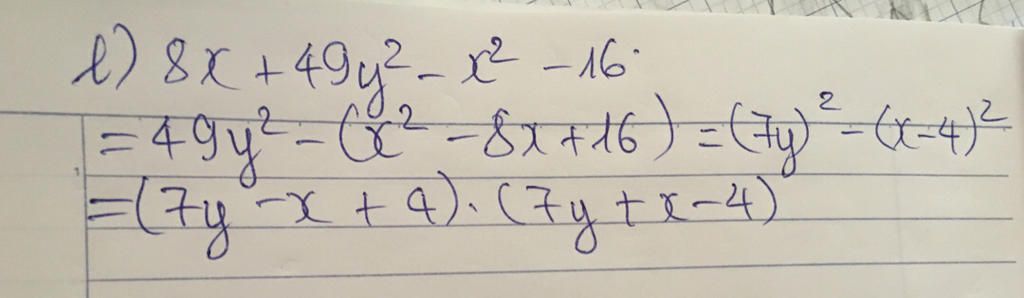 l) 8x + 49y² - x² - 16
= 49y² - (x² - 8x + 16) = (7y)² - (x - 4)²
= (7y - x + 4) . (7y + x - 4)